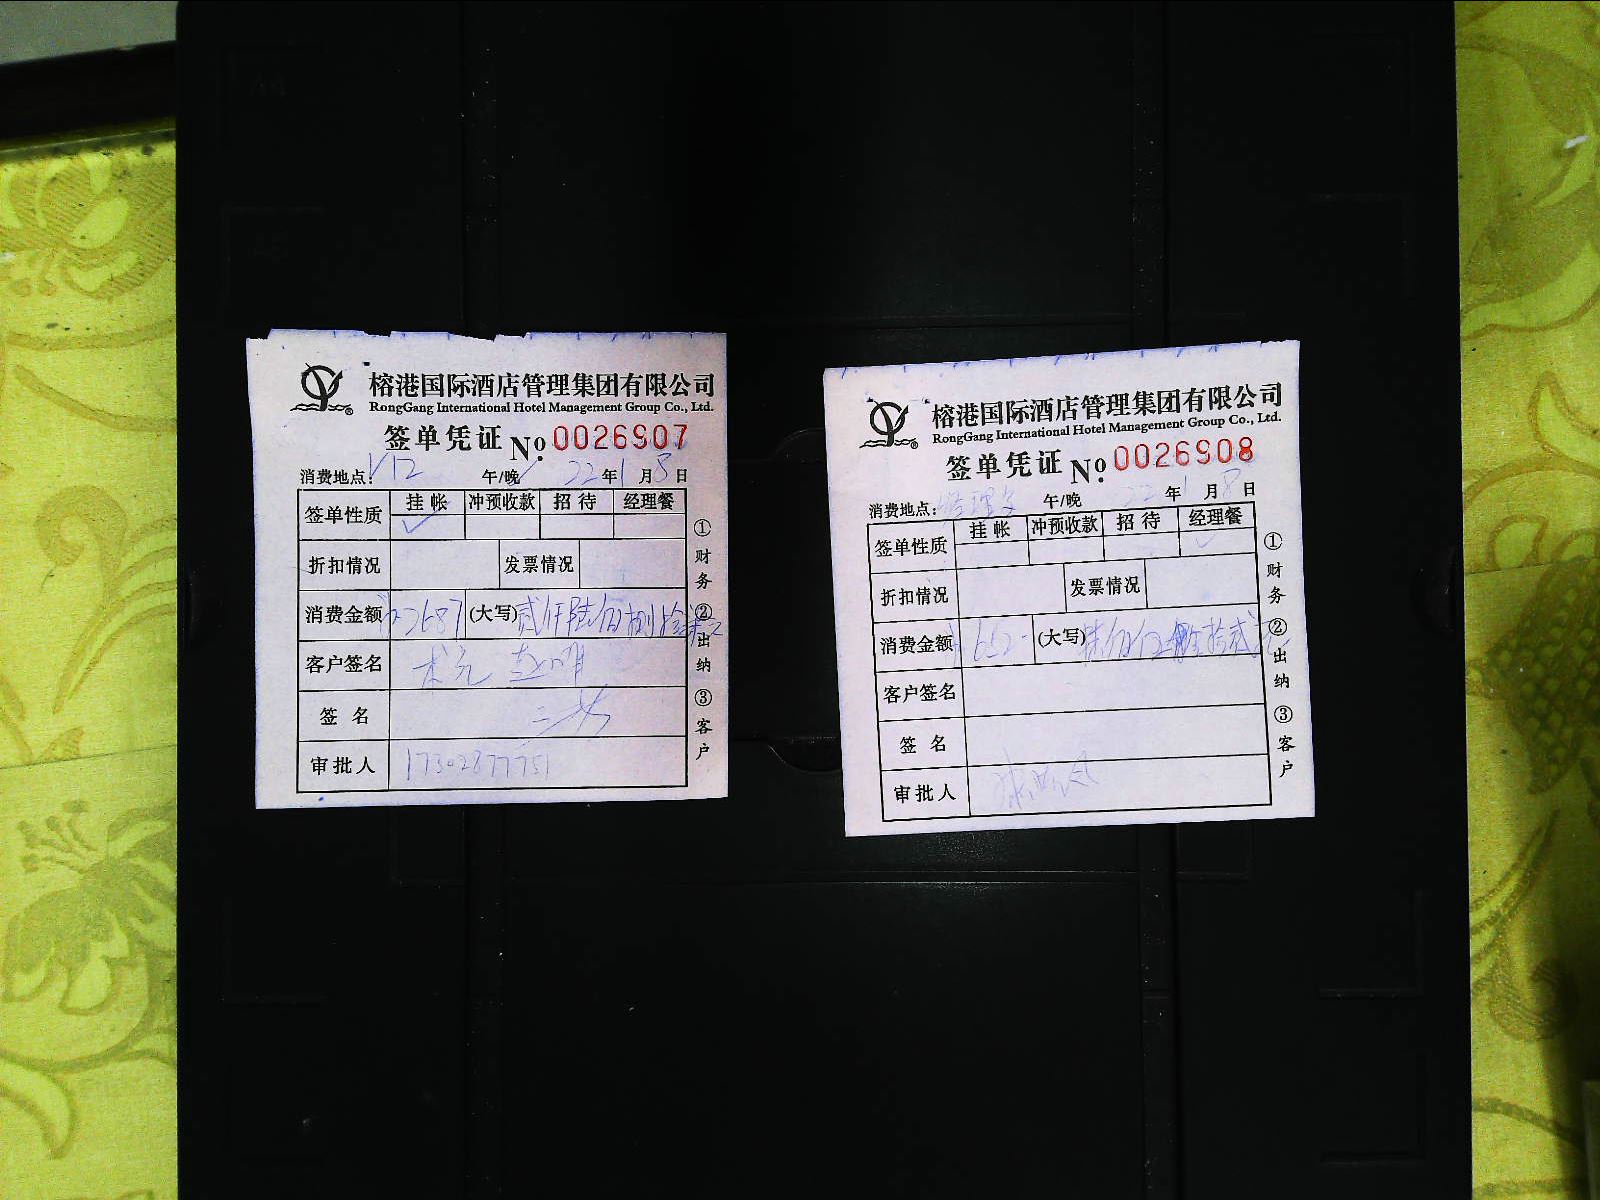 榕港国际酒店管理集团有限公司
RongGang International Hotel Management Group Co., Ltd.
签单凭证 No. 0026907
消费地点: V12 午/晚 22年1月8日
签单性质 挂帐 冲预收款 招待 经理餐
✓
折扣情况 发票情况
消费金额 2687 (大写) 贰仟陆佰捌拾柒元
客户签名
签名
审批人 17302877751
①财务 ②出纳 ③客户
榕港国际酒店管理集团有限公司
RongGang International Hotel Management Group Co., Ltd.
签单凭证 No. 0026908
消费地点: 经理 午/晚 22年1月8日
签单性质 挂帐 冲预收款 招待 经理餐
✓
折扣情况 发票情况
消费金额 652- (大写) 陆佰伍拾贰元
客户签名
签名
审批人
①财务 ②出纳 ③客户